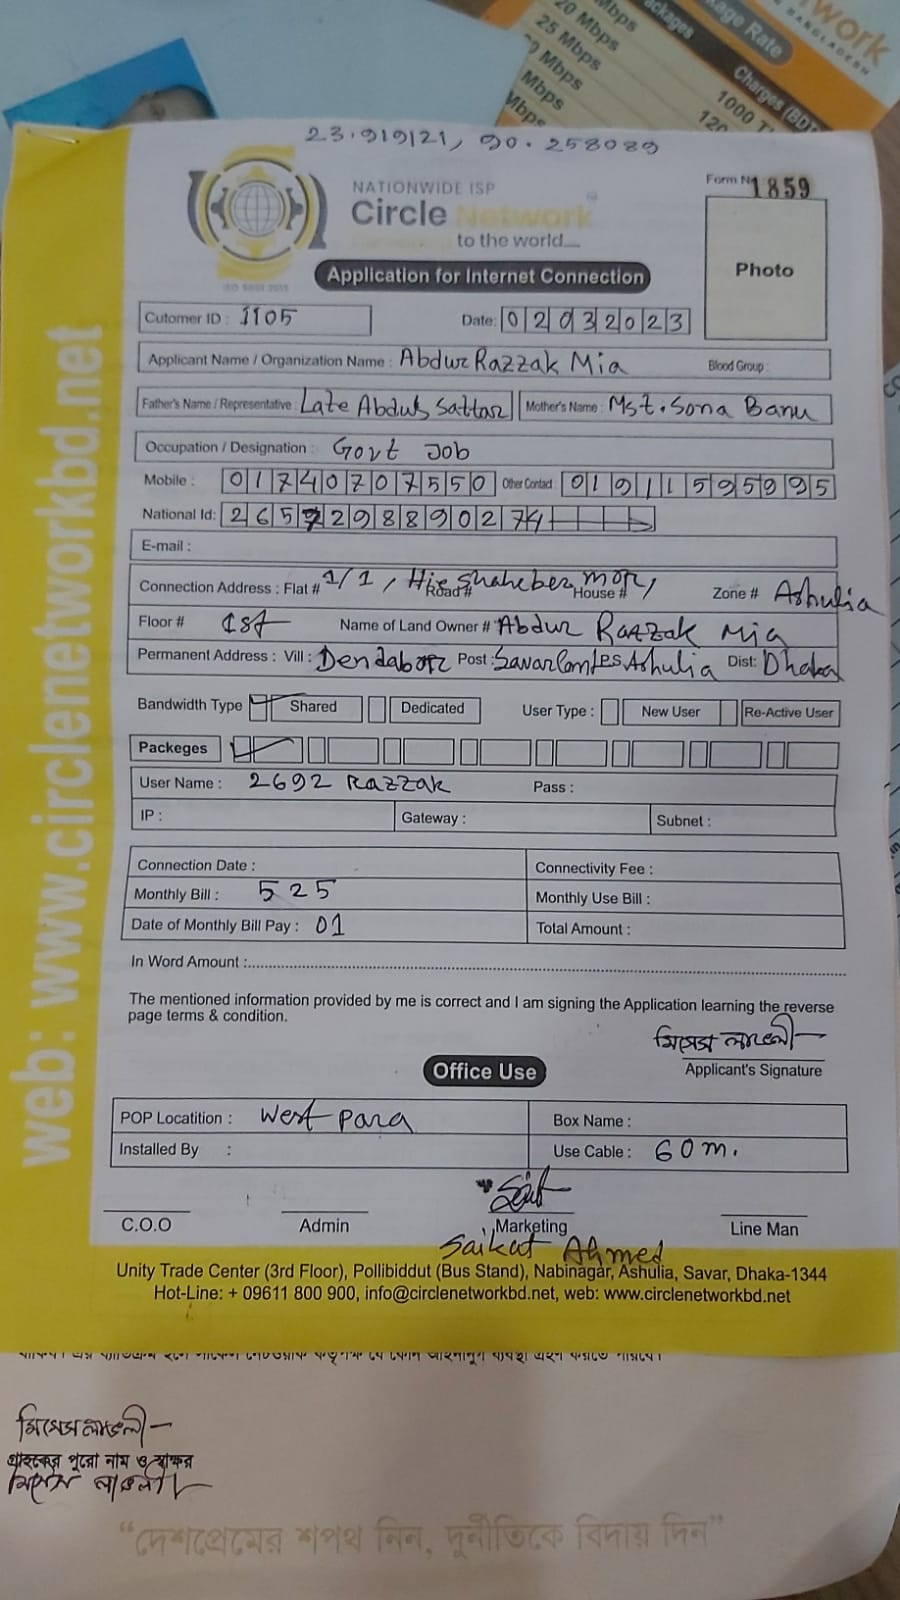 Mbps
20 Mbps
25 Mbps
Mbps
Mbps
Packages
Package Rate
Charges (BDT)
1000 T
120
work
BANGLADESH
23.919121, 90.258089
Form No 1859
NATIONWIDE ISP
Circle Network
to the world....
ISO 9001:2015
Photo
Application for Internet Connection
Cutomer ID : 1105 Date: 02032023
Applicant Name / Organization Name : Abdur Razzak Mia Blood Group :
Father's Name / Representative : Late Abdus Sattar Mother's Name : Mst. Sona Banu
Occupation / Designation : Govt Job
Mobile : 01740707550 Other Contact : 01911595995
National Id: 2657298890274
E-mail :
Connection Address : Flat # 1/1, Road # House # mor, Zone # Ashulia
Floor # 1st Name of Land Owner # Abdur Razzak Mia
Permanent Address : Vill : Dendabor Post : Savar Ashulia Dist: Dhaka
Bandwidth Type Shared Dedicated User Type : New User Re-Active User
Packeges
User Name : 2692 Razzak Pass :
IP : Gateway : Subnet :
Connection Date : Connectivity Fee :
Monthly Bill : 525 Monthly Use Bill :
Date of Monthly Bill Pay : 01 Total Amount :
In Word Amount :
The mentioned information provided by me is correct and I am signing the Application learning the reverse
page terms & condition.
মিসেস লাভলী
Applicant's Signature
Office Use
POP Locatition : West para Box Name :
Installed By : Use Cable : 60 m.
C.O.O Admin Marketing Line Man
Saikat Ahmed
Unity Trade Center (3rd Floor), Pollibiddut (Bus Stand), Nabinagar, Ashulia, Savar, Dhaka-1344
Hot-Line: + 09611 800 900, info@circlenetworkbd.net, web: www.circlenetworkbd.net
web: www.circlenetworkbd.net
মিসেস লাভলী
গ্রাহকের পুরো নাম ও স্বাক্ষর
মিসেস লাভলী
“দেশপ্রেমের শপথ নিন, দুর্নীতিকে বিদায় দিন”